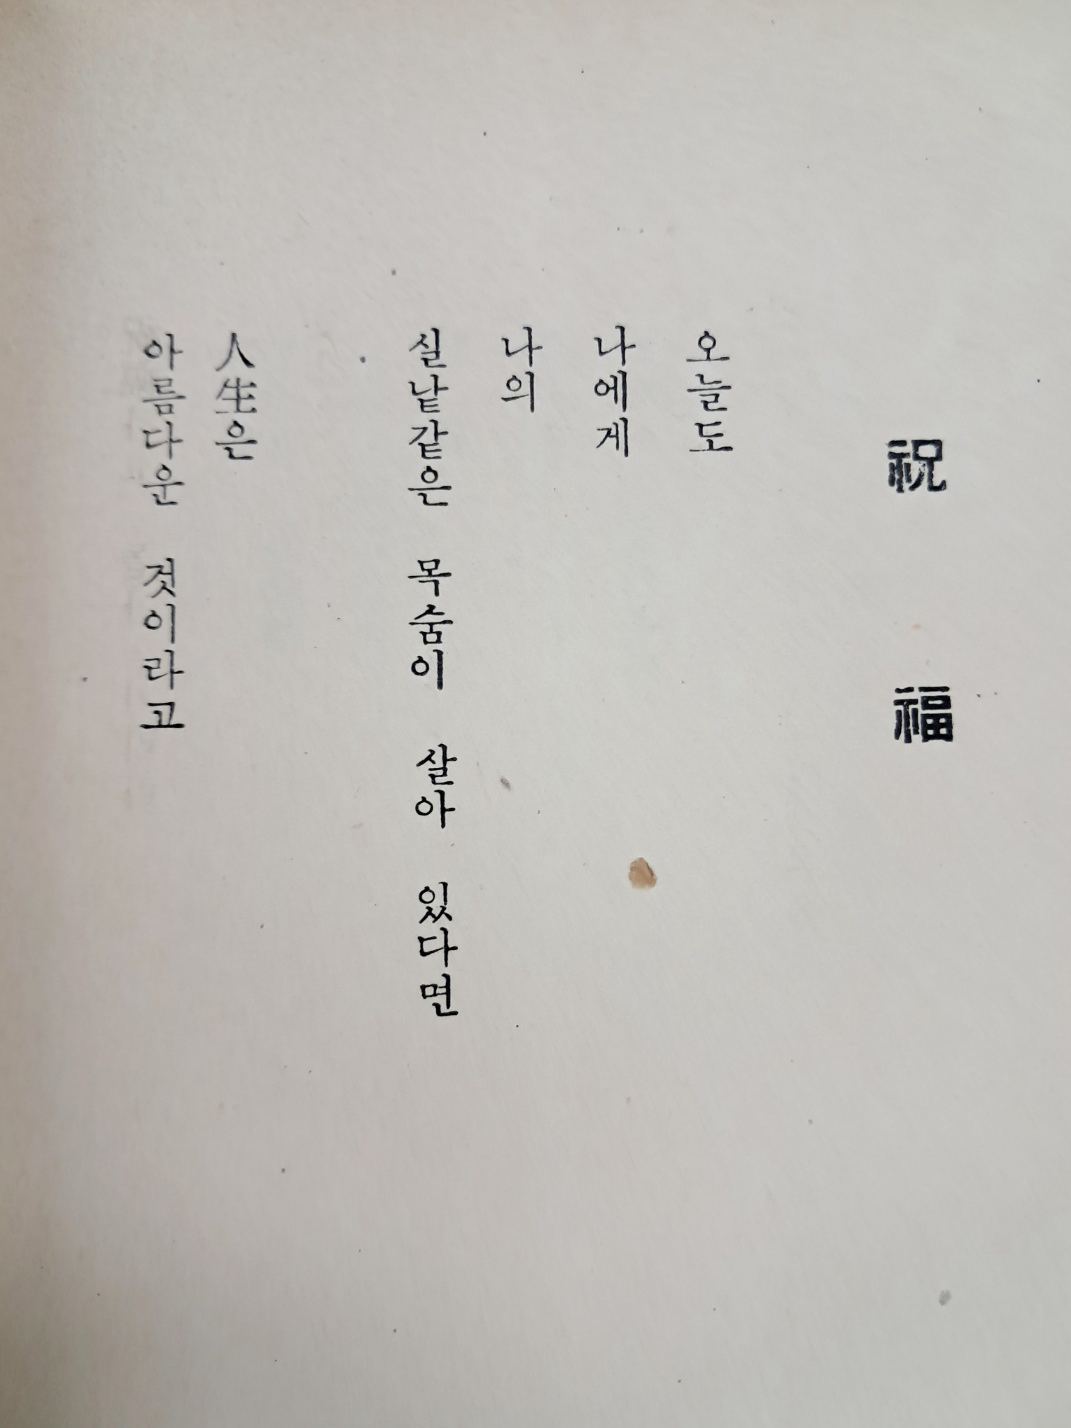 祝福
오늘도
나에게
나의
실낱같은 목숨이 살아 있다면
人生은
아름다운 것이라고